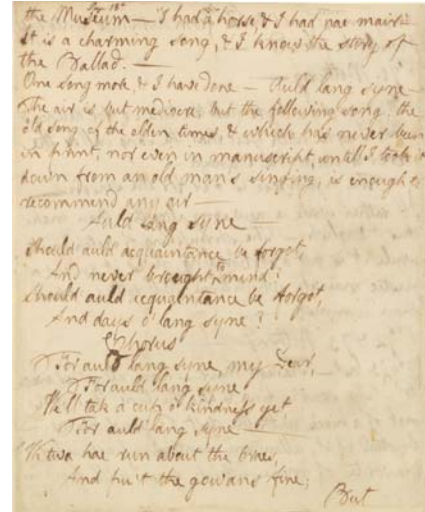 the Museum — "I had a horse, & I had nae mair." —
It is a charming song, & I know the story of
the Ballad. —
One song more, & I have done — Auld lang syne —
The air is but mediocre; but the following song, the
old song of the olden times, & which has never been
in print, nor even in manuscript, until I took it
down from an old man's singing, is enough to
recommend any air —
Auld lang syne —
Should auld acquaintance be forgot,
And never brought to mind?
Should auld acquaintance be forgot,
And days o' lang syne?
Chorus
For auld lang syne, my Dear,
For auld lang syne
We'll tak a cup o' kindness yet
For auld lang syne —
We twa hae run about the braes,
And pu't the gowans fine;
But